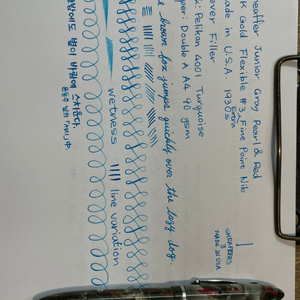 Sheaffer Junior Gray Pearl & Red
14K Gold Flexible #3 Fine Point Nib
Made in U.S.A. 1930s
Lever Filler
Ink: Pelikan 4001 Turquoise
Paper: Double A A4 90 gsm
SHEAFFER'S
3
MADE IN USA
brown fox jumps quickly over the lazy dog.
wetness
line variation
밤에도 별이 바람에 스치운다.